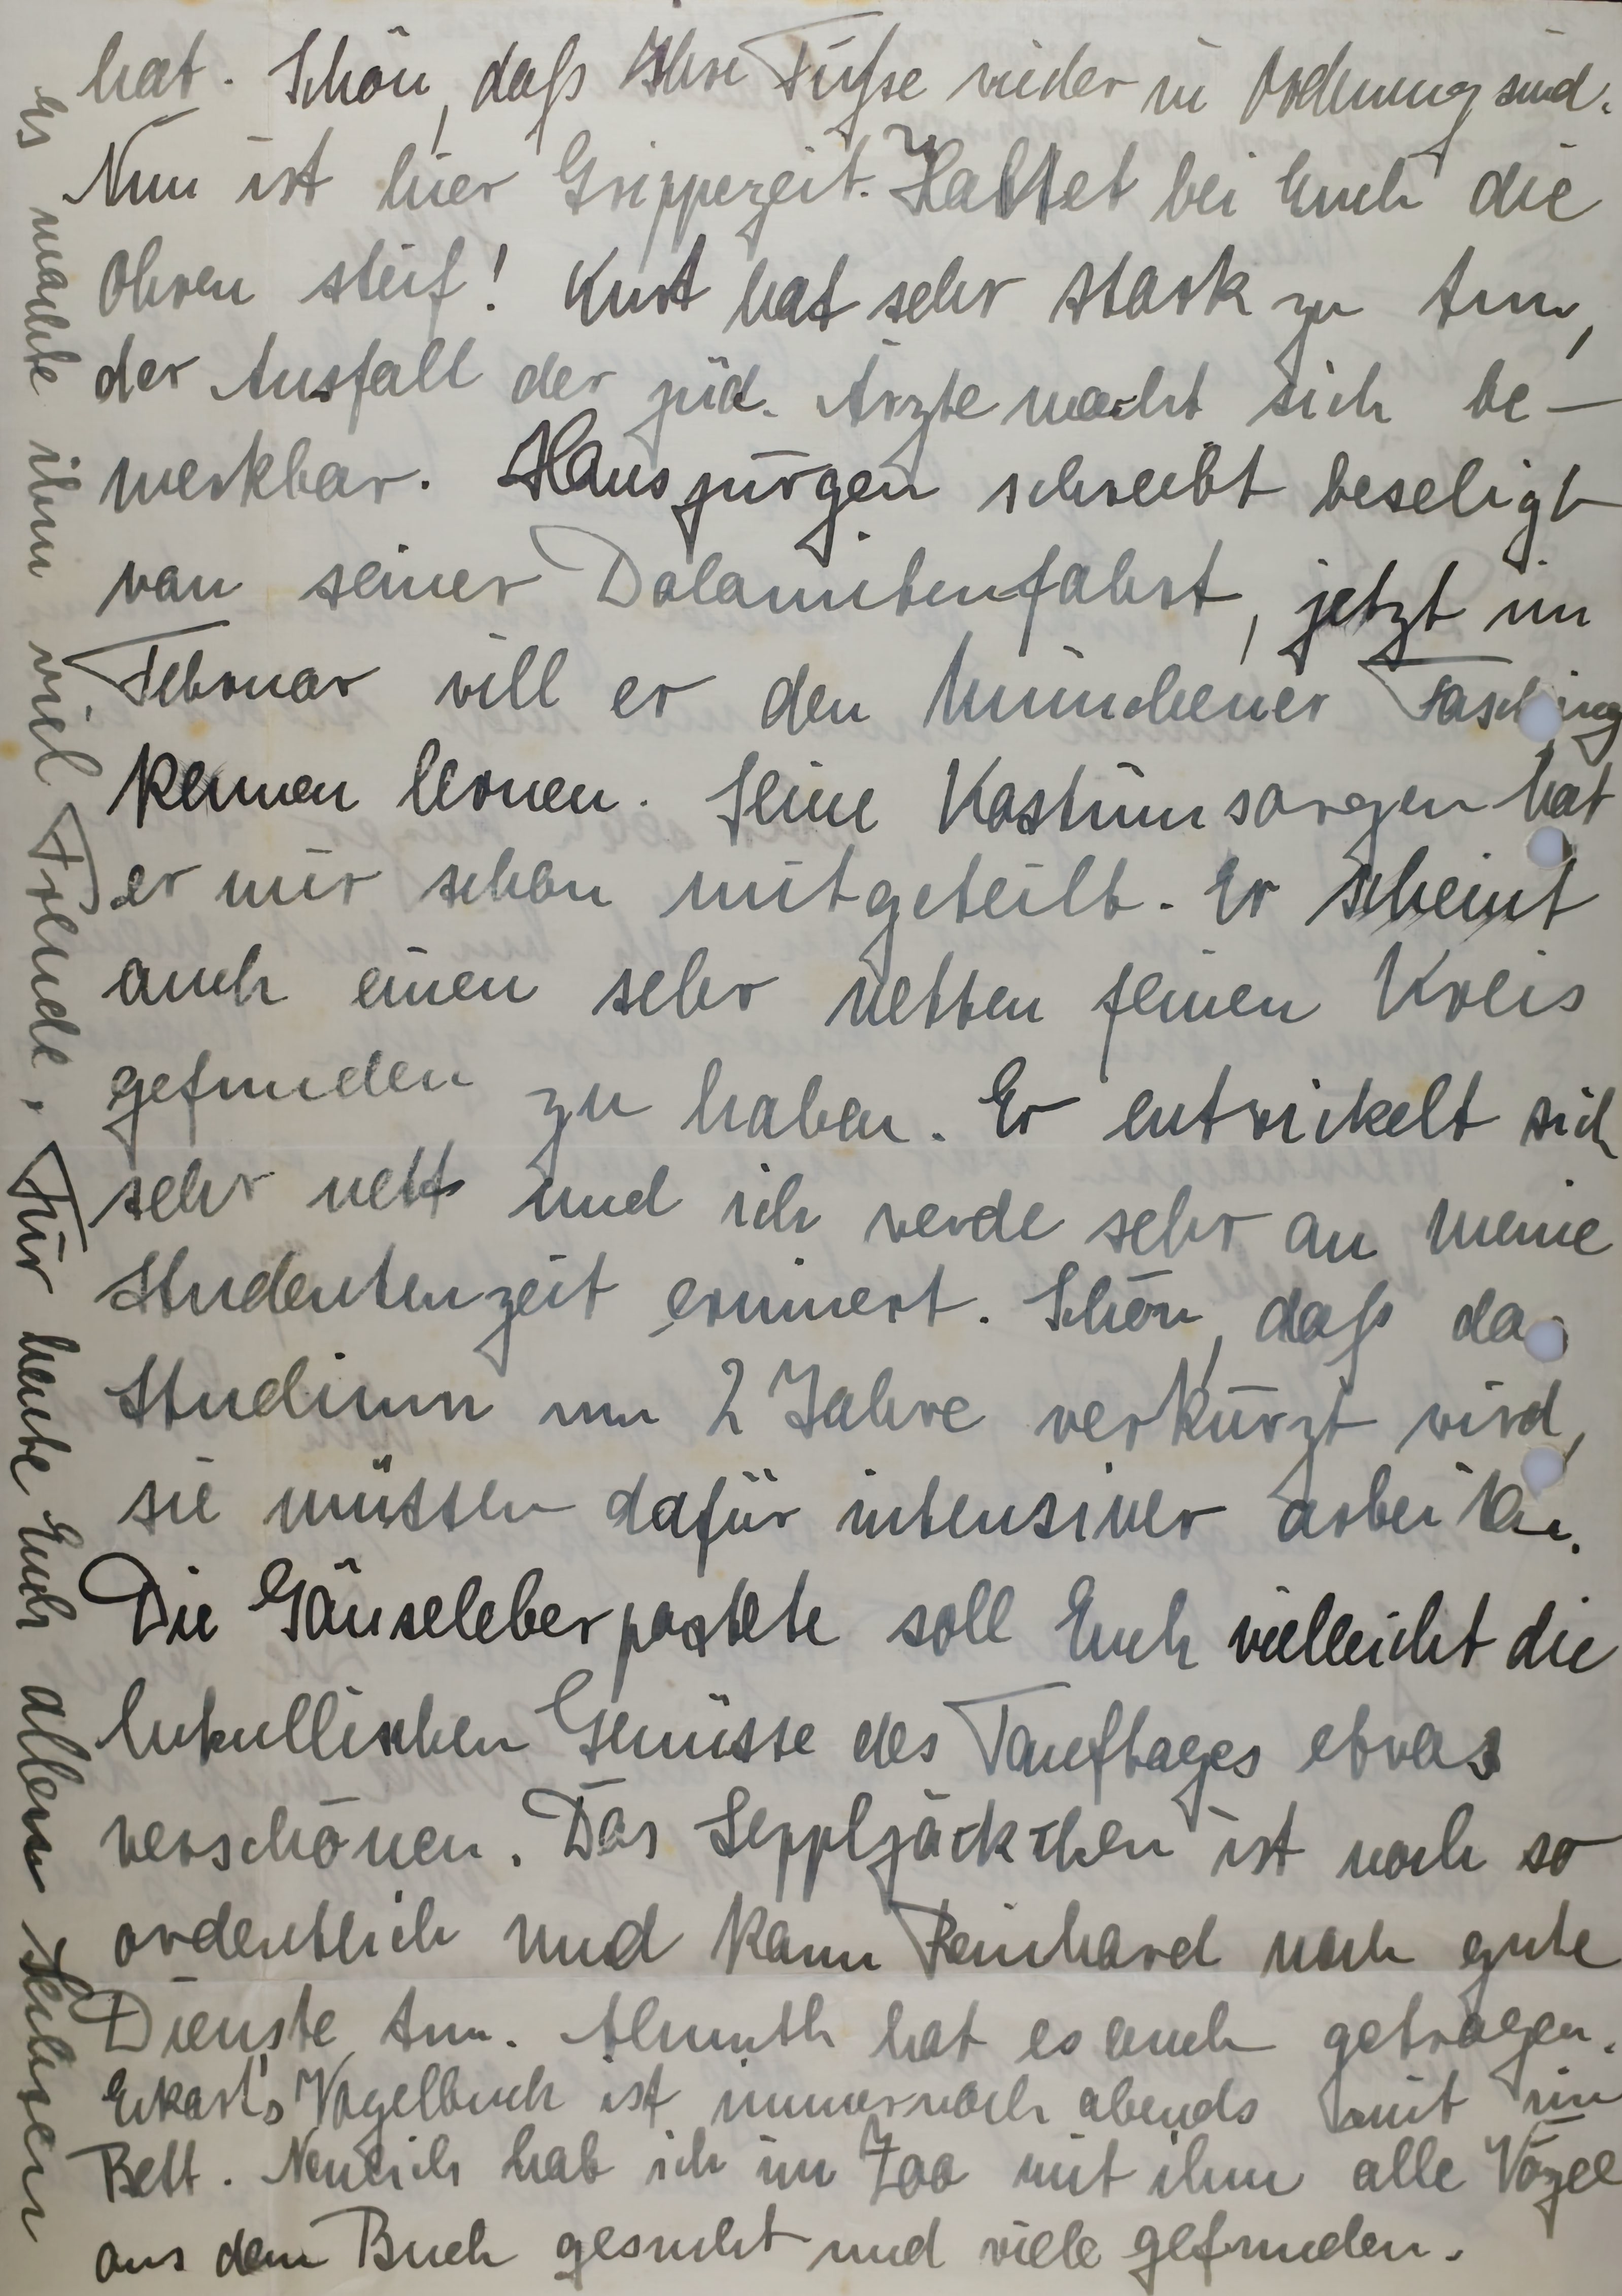 hat. Schön, daß Ihre Füße wieder in Ordnung sind.
Nun ist hier Grippezeit. Haltet bei Euch die
Ohren steif! Kurt hat sehr stark zu tun,
der Ausfall der jüd. Ärzte macht sich be-
merkbar. Hansjürgen schreibt beseligt
von seiner Dolomitenfahrt, jetzt im
Februar will er den Münchener Fasching
kennen lernen. Seine Kostümsorgen hat
er mir schon mitgeteilt. Er scheint
auch einen sehr netten feinen Kreis
gefunden zu haben. Er entwickelt sich
sehr nett und ich werde sehr an meine
Studentenzeit erinnert. Schön, daß das
Studium um 2 Jahre verkürzt wird,
sie müssen dafür intensiver arbeiten.
Die Gänseleberpastete soll Euch vielleicht die
lukullischen Genüsse des Tauftages etwas
verschönen. Das Seppljäckchen ist noch so
ordentlich und kann Reinhard noch gute
Dienste tun. Almuth hat es auch getragen.
Eckart's Vogelbuch ist immernoch abends mit im
Bett. Neulich hab ich im Zoo mit ihm alle Vögel
aus dem Buch gesucht und viele gefunden.
Es machte ihm viel Freude. Für heute Euch allen